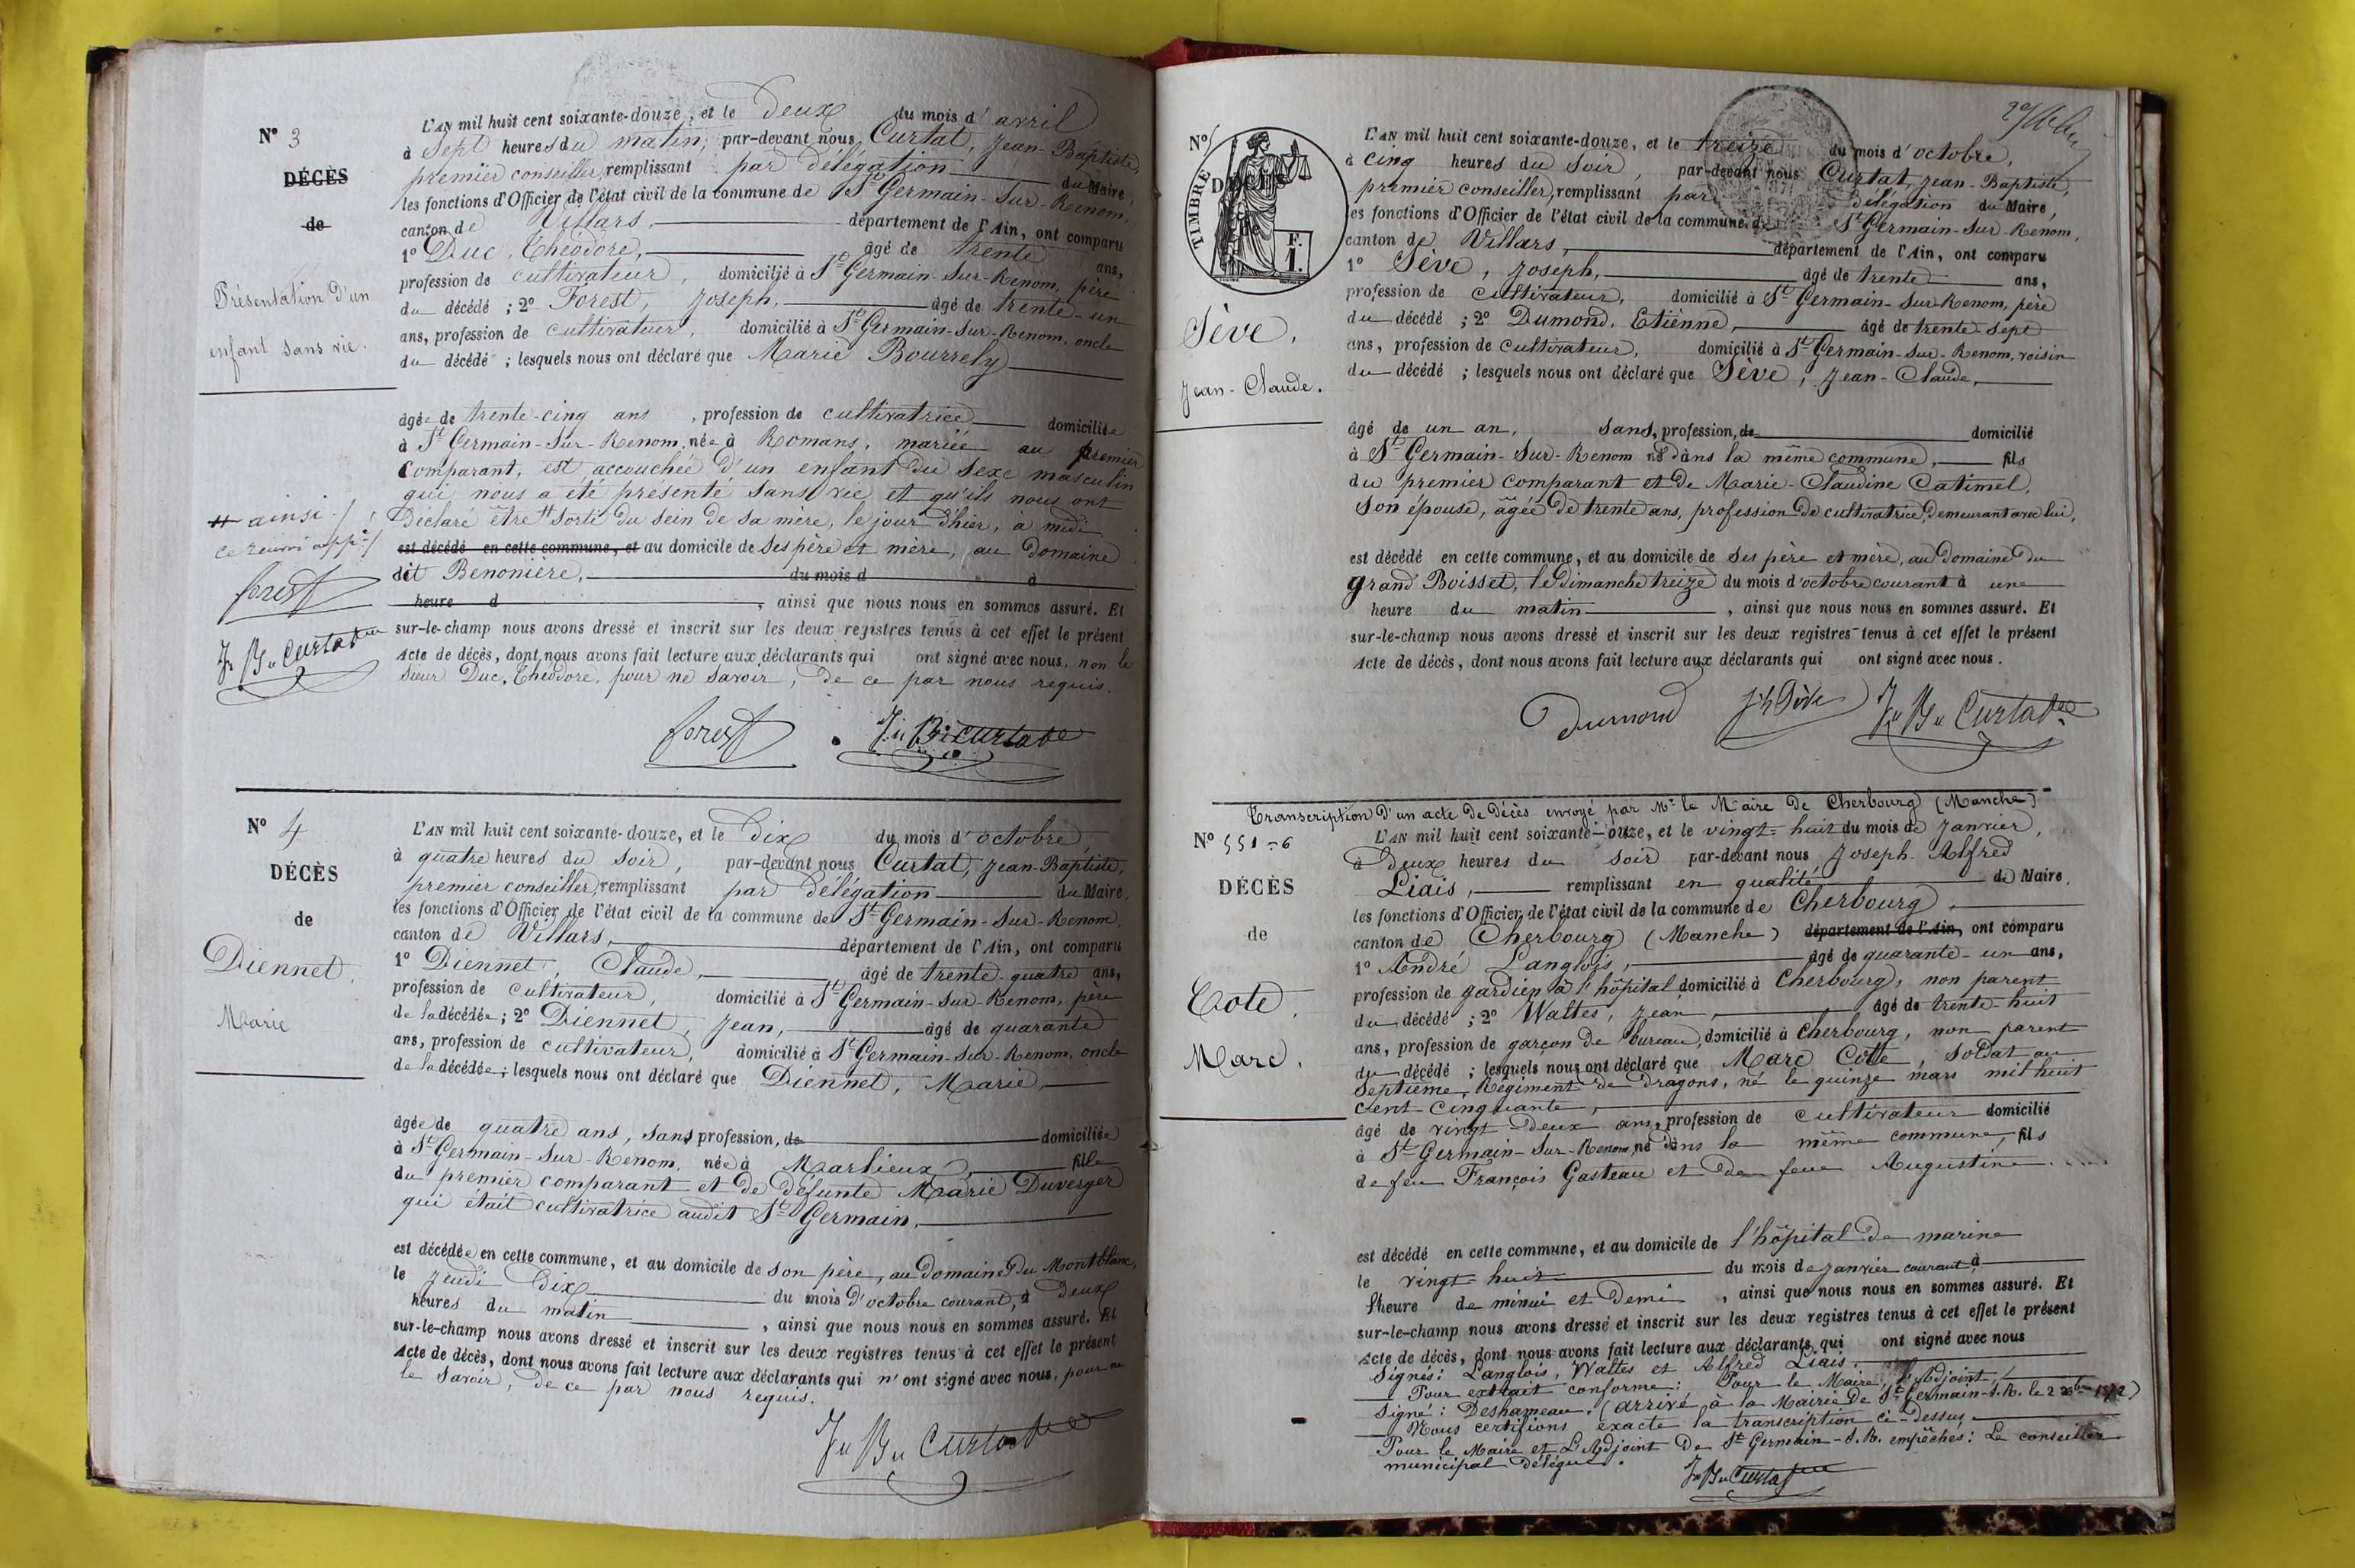 N° 3
DÉCÈS
de
Présentation d'un
enfant sans vie.
L'AN mil huit cent soixante-douze, et le deux du mois d'avril
à sept heures du matin, par-devant nous Curtat, Jean-Baptiste,
premier conseiller, remplissant par délégation du Maire,
les fonctions d'Officier de l'état civil de la commune de St Germain-sur-Renom,
canton de Villars, département de l'Ain, ont comparu
1° Duc, Théodore, âgé de trente ans,
profession de cultivateur, domicilié à St Germain-sur-Renom, père
du décédé ; 2° Forest, Joseph, âgé de trente-un
ans, profession de cultivateur, domicilié à St Germain-sur-Renom, oncle
du décédé ; lesquels nous ont déclaré que Marie Bourrely
âgée de trente-cinq ans, profession de cultivatrice domiciliée
à St Germain-sur-Renom, née à Romans, mariée au premier
comparant, est accouchée d'un enfant du sexe masculin
qui nous a été présenté sans vie et qu'ils nous ont
déclaré être # sorti du sein de sa mère, le jour d'hier, à midi
# ainsi /
ce renvoi app:é/
forest
Jn Bte Curtat
est décédé en cette commune, et au domicile de ses père et mère, au domaine
dit Benonière, du mois d à
heure d , ainsi que nous nous en sommes assuré. Et
sur-le-champ nous avons dressé et inscrit sur les deux registres tenus à cet effet le présent
Acte de décès, dont nous avons fait lecture aux déclarants qui ont signé avec nous, non le
sieur Duc, Théodore, pour ne savoir, de ce par nous requis.
forest Jn Bte Curtat
N° 4
DÉCÈS
de
Diennet,
Marie
L'AN mil huit cent soixante-douze, et le dix du mois d'octobre,
à quatre heures du soir, par-devant nous Curtat, Jean-Baptiste,
premier conseiller, remplissant par délégation du Maire,
les fonctions d'Officier de l'état civil de la commune de St Germain-sur-Renom,
canton de Villars, département de l'Ain, ont comparu
1° Diennet, Claude, âgé de trente-quatre ans,
profession de cultivateur, domicilié à St Germain-sur-Renom, père
de la décédée ; 2° Diennet, Jean, âgé de quarante
ans, profession de cultivateur, domicilié à St Germain-sur-Renom, oncle
de la décédée ; lesquels nous ont déclaré que Diennet, Marie,
âgée de quatre ans, sans profession, de domiciliée
à St Germain-sur-Renom, née à Marlieux, fille
du premier comparant et de défunte Marie Duverger
qui était cultivatrice audit St Germain,
est décédée en cette commune, et au domicile de son père, au domaine du Montblanc,
le jeudi dix du mois d'octobre courant, à deux
heures du matin , ainsi que nous nous en sommes assuré. Et
sur-le-champ nous avons dressé et inscrit sur les deux registres tenus à cet effet le présent
Acte de décès, dont nous avons fait lecture aux déclarants qui n'ont signé avec nous, pour ne
le savoir, de ce par nous requis.
Jn Bte Curtat
N°
TIMBRE
F.
I.
Sève,
Jean-Claude.
L'AN mil huit cent soixante-douze, et le treize du mois d'octobre,
à cinq heures du soir, par-devant nous Curtat, Jean-Baptiste,
premier conseiller, remplissant par délégation du Maire,
les fonctions d'Officier de l'état civil de la commune de St Germain-sur-Renom,
canton de Villars, département de l'Ain, ont comparu
1° Sève, Joseph, âgé de trente ans,
profession de cultivateur, domicilié à St Germain-sur-Renom, père
du décédé ; 2° Dumond, Etienne, âgé de trente-sept
ans, profession de cultivateur, domicilié à St Germain-sur-Renom, voisin
du décédé ; lesquels nous ont déclaré que Sève, Jean-Claude,
âgé de un an, sans profession, de domicilié
à St Germain-sur-Renom né dans la même commune, fils
du premier comparant et de Marie-Claudine Catimel,
son épouse, âgée de trente ans, profession de cultivatrice, demeurant avec lui,
est décédé en cette commune, et au domicile de ses père et mère, au domaine du
grand Boisset, le dimanche treize du mois d'octobre courant à une
heure du matin , ainsi que nous nous en sommes assuré. Et
sur-le-champ nous avons dressé et inscrit sur les deux registres tenus à cet effet le présent
Acte de décès, dont nous avons fait lecture aux déclarants qui ont signé avec nous.
Dumond Jh Sève Jn Bte Curtat
Transcription d'un acte de décès envoyé par Mr le Maire de Cherbourg (Manche)
N° 551-6
DÉCÈS
de
Cote,
Marc.
L'AN mil huit cent soixante-douze, et le vingt-huit du mois de Janvier,
à deux heures du soir par-devant nous Joseph-Alfred
Liais, remplissant en qualité de Maire,
les fonctions d'Officier de l'état civil de la commune de Cherbourg,
canton de Cherbourg (Manche) département de l'Ain, ont comparu
1° André Langlois, âgé de quarante-un ans,
profession de gardien à l'hôpital domicilié à Cherbourg, non parent
du décédé ; 2° Waltes, Jean, âgé de trente-huit
ans, profession de garçon de bureau, domicilié à Cherbourg, non parent
du décédé ; lesquels nous ont déclaré que Marc Cotte, soldat au
septième Régiment de Dragons, né le quinze mars mil huit
cent cinquante,
âgé de vingt-deux ans, profession de cultivateur domicilié
à St Germain-sur-Renom, né dans la même commune, fils
de feu François Gasteau et de feue Augustine ....
est décédé en cette commune, et au domicile de l'hôpital de marine
le vingt-huit du mois de janvier courant à
l'heure de minui et demi , ainsi que nous nous en sommes assuré. Et
sur-le-champ nous avons dressé et inscrit sur les deux registres tenus à cet effet le présent
Acte de décès, dont nous avons fait lecture aux déclarants qui ont signé avec nous
Signés: Langlois, Waltes et Alfred Liais.
Pour extrait conforme: Pour le Maire, l'Adjoint,
Signé: Deshameau. (arrivé à la Mairie de St Germain-s.R. le 2 1872)
Nous certifions exacte la transcription ci-dessus
Pour le Maire et L'Adjoint de St Germain-s.R. empêchés: Le conseiller
municipal délégué.
Jn Bte Curtat